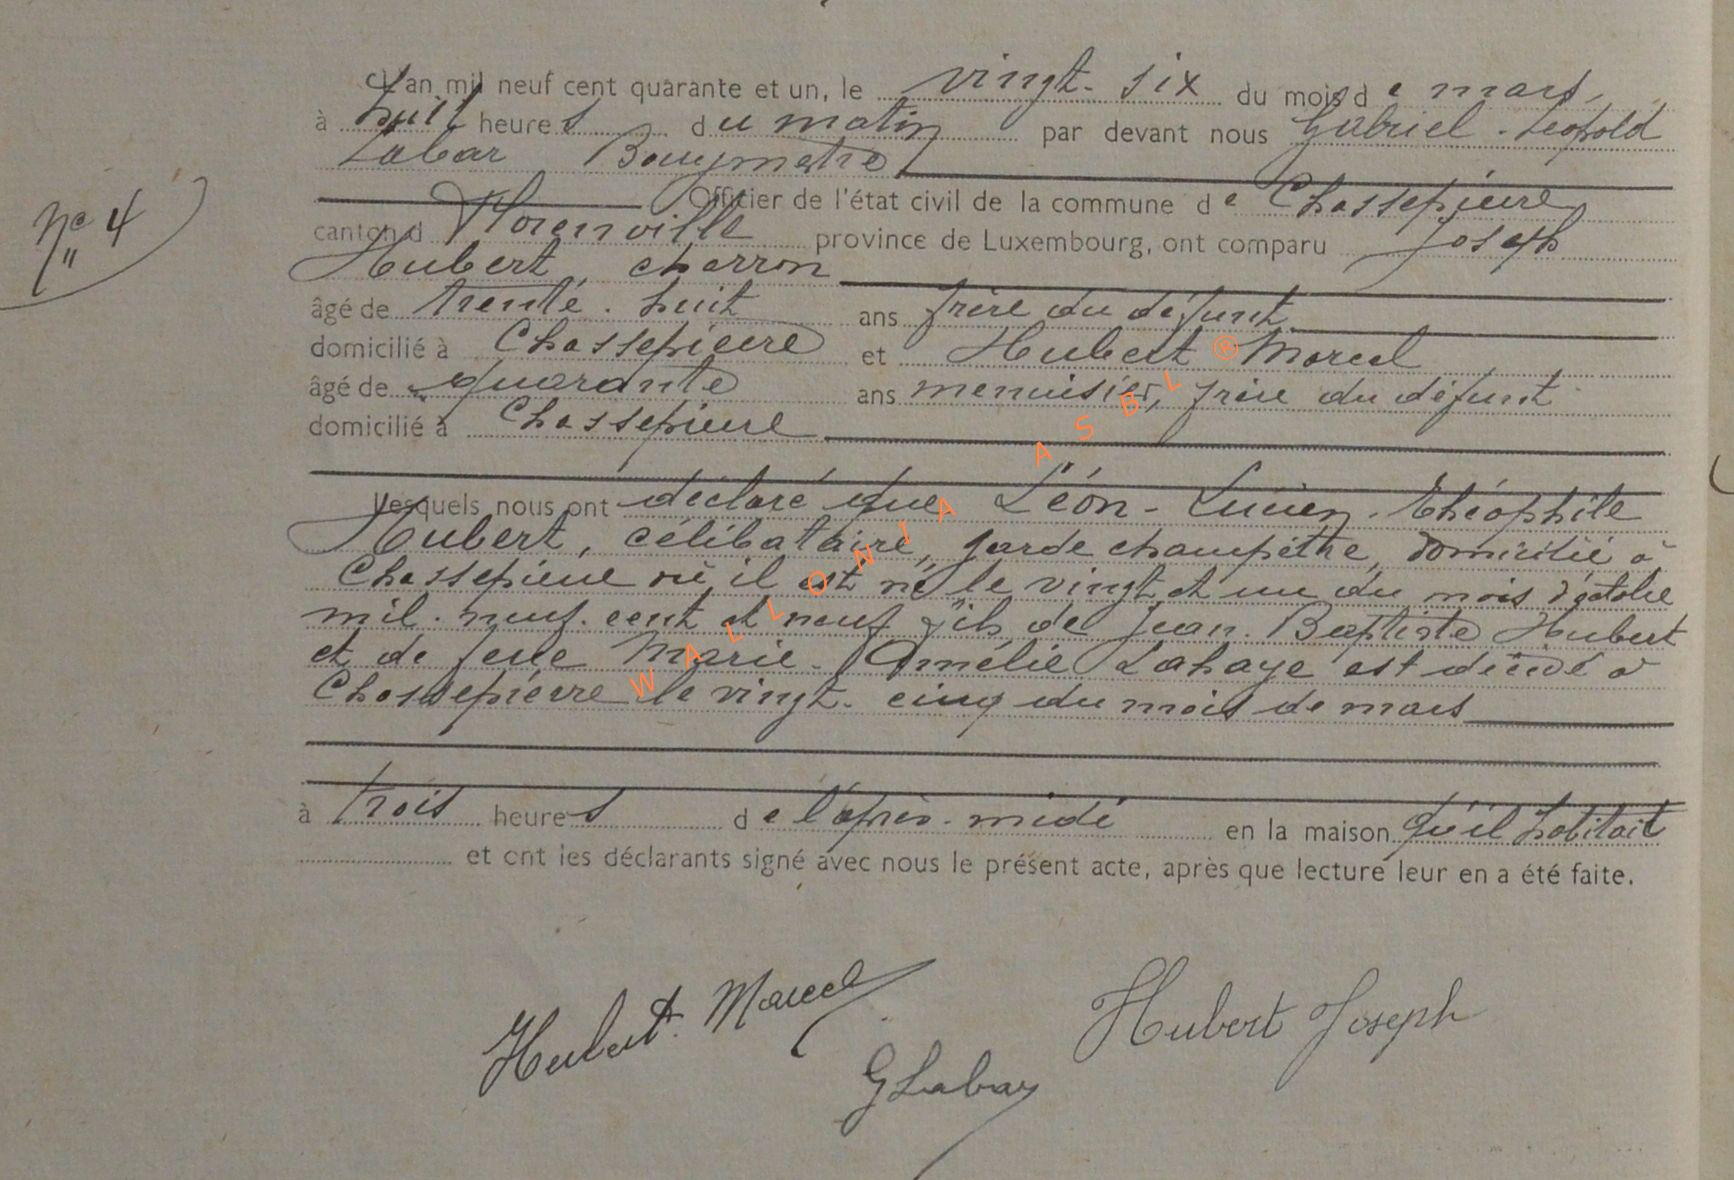 L'an mil neuf cent quarante et un, le vingt-six du mois de mars,
à huit heures du matin par devant nous Gabriel-Léopold
Labar Bourgmestre
Officier de l'état civil de la commune de Chassepierre
N° 4
canton d Florenville province de Luxembourg, ont comparu Joseph
Hubert, charron
âgé de trente-huit ans frère du défunt
domicilié à Chassepierre et Hubert Marcel
âgé de quarante ans menuisier, frère du défunt
domicilié à Chassepierre
Lesquels nous ont déclaré que Léon-Lucien-Théophile
Hubert, célibataire, garde champêtre, domicilié à
Chassepierre où il est né le vingt et un du mois d'octobre
mil-neuf-cent et neuf fils de Jean-Baptiste Hubert
et de feue Marie-Amélie Lahaye est décédé à
Chassepierre le vingt-cinq du mois de mars
à trois heures de l'après-midi en la maison qu'il habitait
et ont les déclarants signé avec nous le présent acte, après que lecture leur en a été faite.
Hubert Marcel
Hubert Joseph
G Labar
WALLONIA ASBL ®